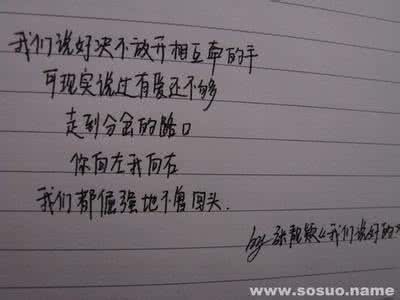 我们说好决不放开相互牵的手
可现实说过有爱还不够
走到分岔的路口
你向左我向右
我们都倔强地不曾回头.
by 张靓颖《我们说好的》
www.sosuo.name